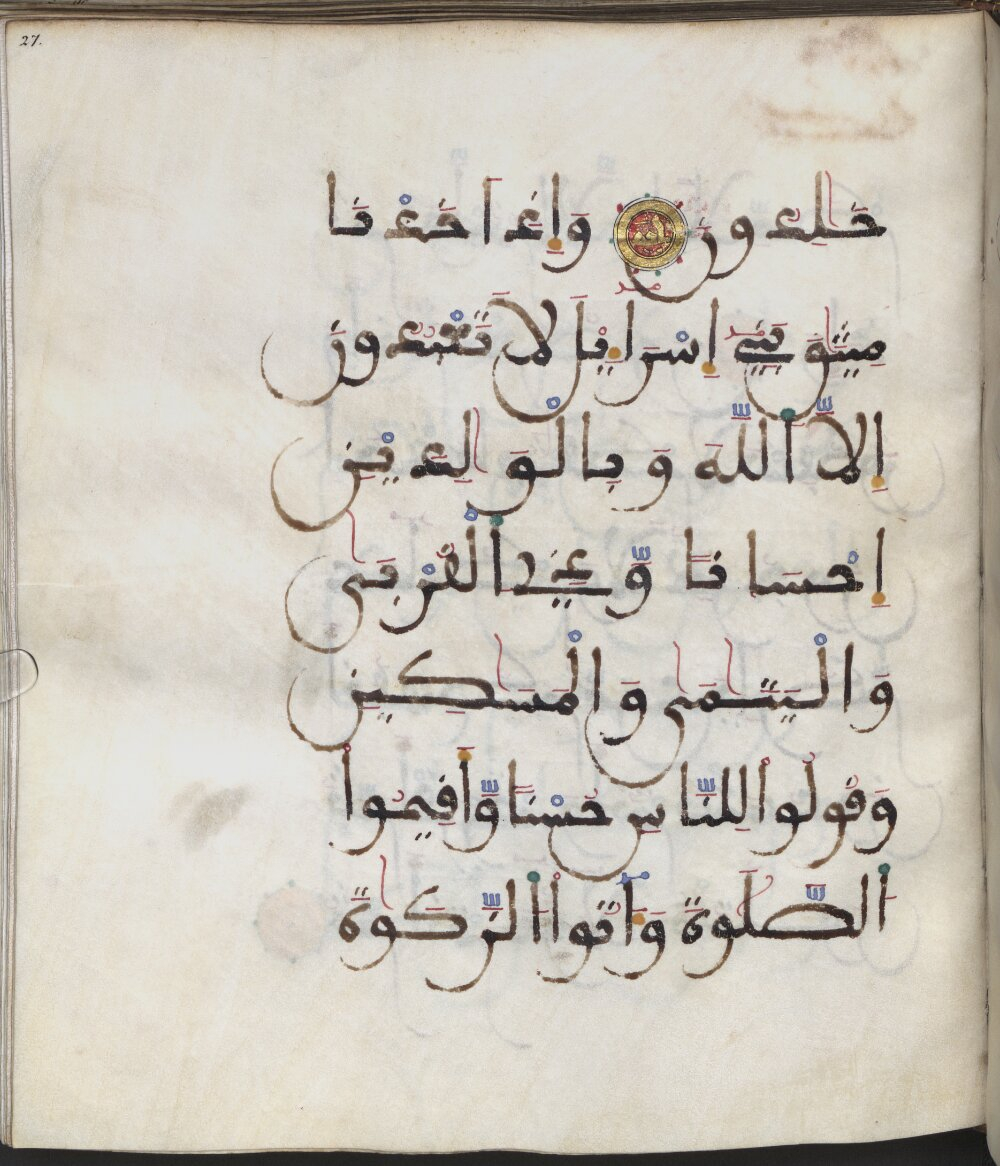 27.
خَٰلِدُونَ وَإِذَ اَخَذْنَا
مِيثَٰقَ بَنِىٓ إِسْرَآءِيلَ لَا تَعْبُدُونَ
إِلَّا اَ۬للَّهَ وَبِالْوَٰلِدَيْنِ
إِحْسَانًا وَّذِى اِ۬لْقُرْبَىٰ
وَالْيَتَٰمَىٰ وَالْمَسَٰكِينِ
وَقُولُواْ لِلنَّاسِ حُسْنًا وَّأَقِيمُواْ
اُ۬لصَّلَوٰةَ وَءَاتُواْ اُ۬لزَّكَوٰةَ